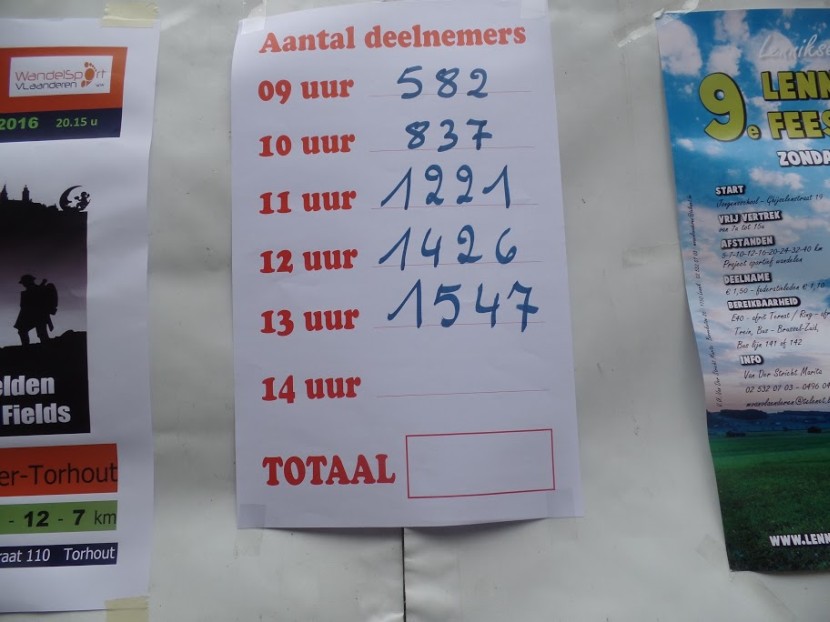 WandelSport
VLaanderen vzw
2016 20.15 u
elden
Fields
er-Torhout
- 12 - 7 km
raat 110 Torhout
Aantal deelnemers
09 uur 582
10 uur 837
11 uur 1221
12 uur 1426
13 uur 1547
14 uur
TOTAAL
9e LENN
FEES
ZONDA
START
VRIJ VERTREK
van 7u tot 15u
AFSTANDEN
5-7-10-12-16-20-24-32-40 km
Project sportief wandelen
DEELNAME
€ 1,50 - federatieleden € 1,10
BEREIKBAARHEID
E40 - afrit Ternat / Ring - afr
Trein, Bus - Brussel-Zuid,
Bus lijn 141 of 142
INFO
Van Der Stricht Marita
02 532 07 03 - 0496 04
WWW.LENN